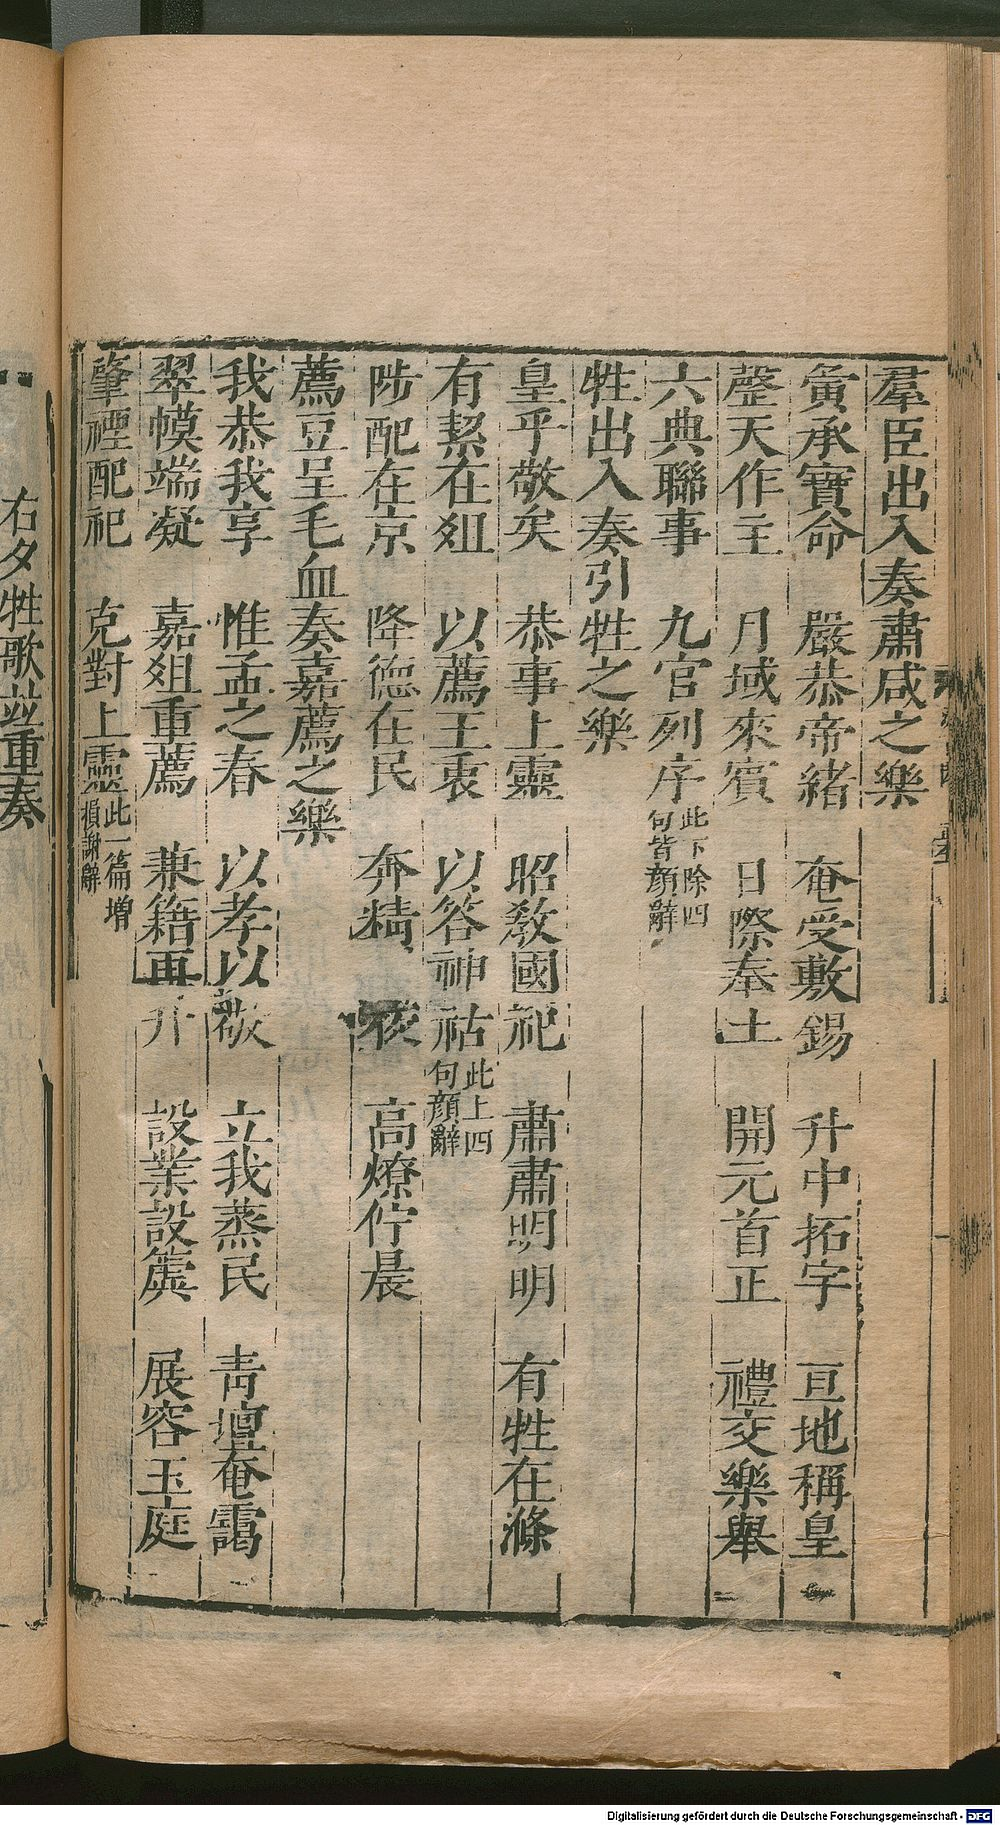 羣臣出入奏肅咸之樂
夤承寶命　嚴恭帝緒　奄受敷錫　升中拓宇　亘地稱皇
罄天作主　月域來賓　日際奉土　開元首正　禮交樂舉
六典聯事　九官列序此下除四句皆顏辭
牲出入奏引牲之樂
皇乎敬矣　恭事上靈　昭教國祀　肅肅明明　有牲在滌
有絜在俎　以薦王衷　以答神祜此上四句顏辭
陟配在京　降德在民　奔精　夜　高燎佇晨
薦豆呈毛血奏嘉薦之樂
我恭我享　惟孟之春　以孝以敬　立我蒸民　青壇奄靄
翠幙端凝　嘉俎重薦　兼籍再升　設業設簴　展容玉庭
肇禋配祀　克對上靈此一篇增損謝辭
右夕牲歌並重奏
Digitalisierung gefördert durch die Deutsche Forschungsgemeinschaft - DFG